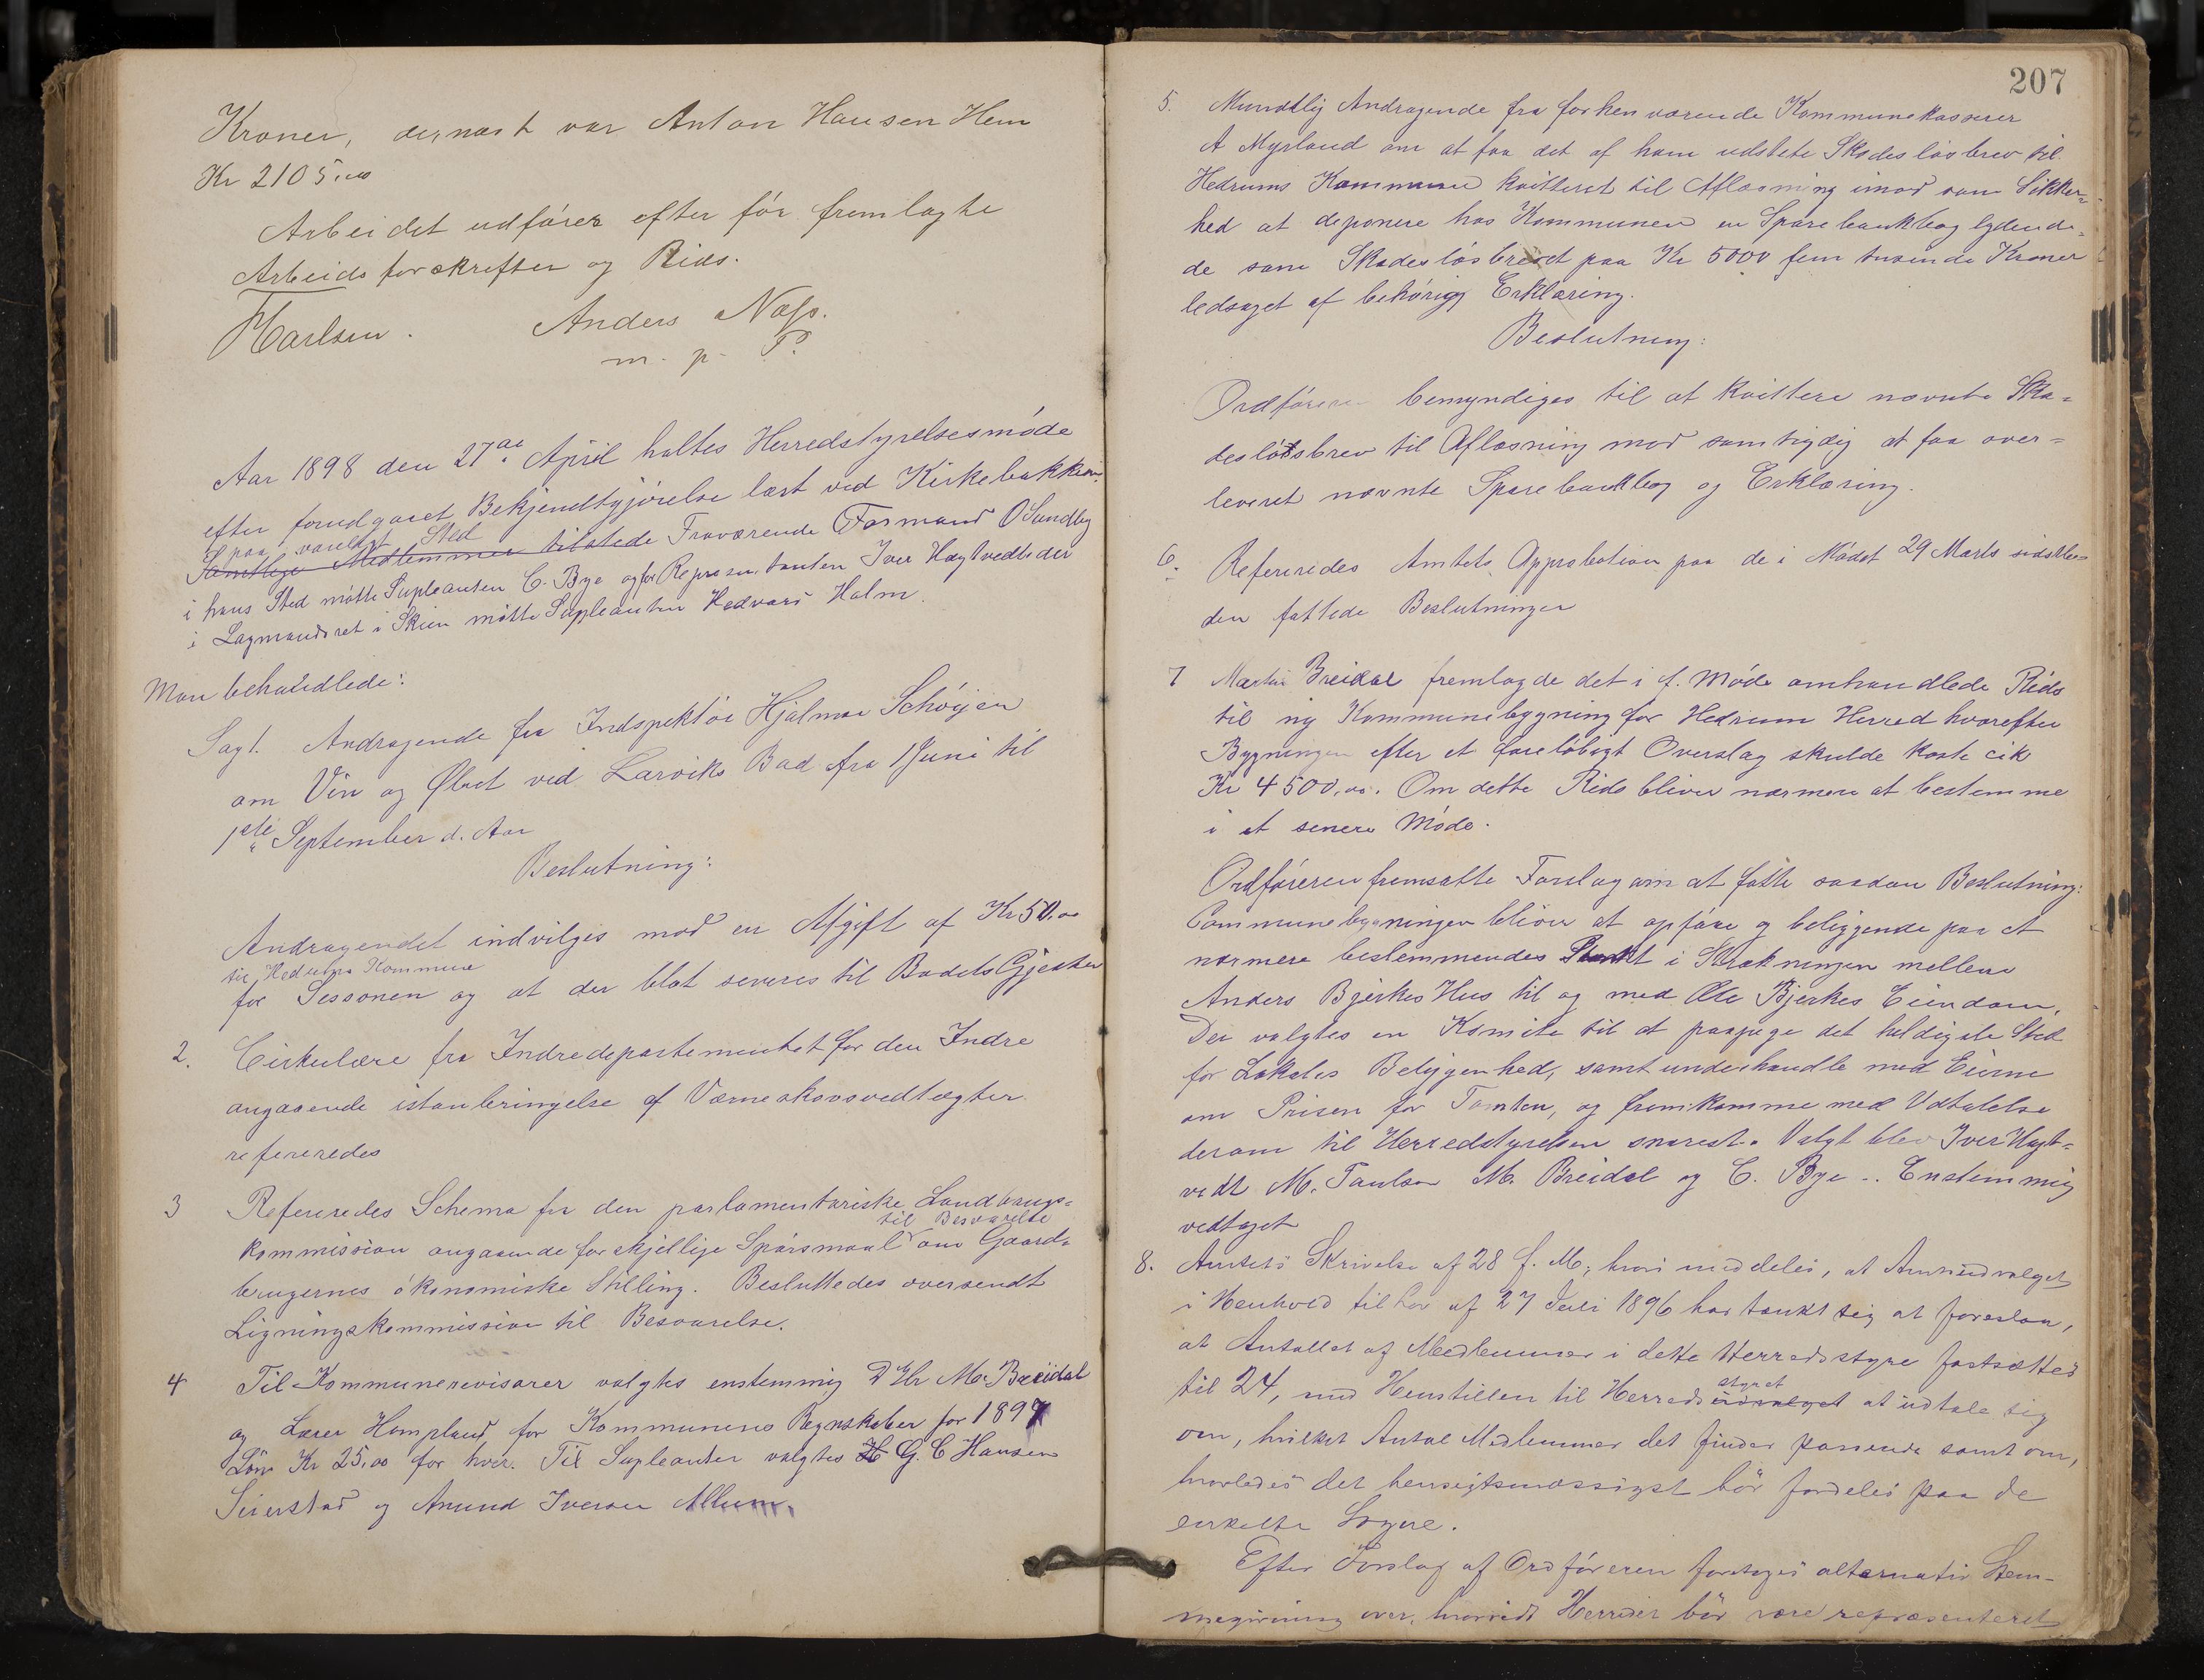 Kroner, dernæst var Anton Hansen Hem
Kr 2105,00
Arbeidet udføres efter før fremlagte
Arbeidsforskrifter og Rids.
Anders Næss.
m. p. P.
Aar 1898 den 27de April holtes Herredstyrelsesmøde
efter forudgaaet Bekjendtgjørelse læst ved Kirkebakken
paa vanligt Sted
Samtlige Medlemmer tilstede Fraværende Formand O Sundby
i hans Sted møtte Supleanten C. Bye og for Repræsentanten Iver Hagtvedt der
i Lagmandsret i Skien møtte Supleanten Hedvard Holm.
Man behandlede:
Sag 1. Andragende fra Indspektør Hjalmar Schøyen
om Vin og Ølret ved Larviks Bad fra 1 Juni til
1ste September d. Aar
Beslutning:
Andragendet indvilges mod en Afgift af Kr 50.00
til Hedrums Kommune
for Sessonen og at der blot serveres til Badets Gjester
2. Cirkulære fra Indredepartementet for den Indre
angaaende istanbringelse af Værneskovsvedtægter
refereredes
3 Refereredes Schema fra den parlamentariske Landbrugs-
til Besvarelse
kommission angaaende forskjellige Spørsmaal om Gaard-
brugernes økonomiske Stilling. Besluttedes oversendt
Ligningskommission til Besvarelse.
4 Til Kommunerevisorer valgtes enstemmig D'Hr M. Breidal
og Lærer Hompland for Kommunens Regnskaber for 1897
Løn Kr 25,00 for hver. Til Supleanter valgtes H G. C Hansen
Seierstad og Amund Iversen Allum.
207
5. Mundtlig Andragende fra forhenværende Kommunekasserer
A Myrland om at faa det af ham udstete Skadesløsbrev til
Hedrums Kommune kvitteret til Aflæsning imod som Sikker-
hed at deponere hos Kommunen en Sparebankbog lydende-
de som Skadesløsbrevet paa Kr 5000 fem tusende Kroner
ledsaget af behørig Erklæring.
Beslutning:
Ordføreren bemyndiges til at kvittere nævnte Ska-
desløsbrev til Aflæsning mod samtigdig at faa over-
leveret nævnte Sparebankbog og Erklæring.
6. Refereredes Amtets Approbation paa de i Mødet 29 Marts sidstle-
den fattede Beslutninger
7 Martin Breidal fremlagde det i f. Møde omhandlede Rids
til ny Kommunebygning for Hedrum Herred hvorefter
Bygningen efter et foreløbigt Overslag skulde koste cik
Kr 4500,00. Om dette Rids bliver nærmere at bestemme
i et senere Møde.
Ordføreren fremsatte Forslag om at fatte saadan Beslutning:
Communebygningen bliver at opføre og beliggende paa et
nærmere bestemmendes Punkt i Strækningen mellem
Anders Bjerkes Hus til og med Ole Bjerkes Eiendom,
Der valgtes en Komite til at paapege det heldigste Sted
for Lokalets Beliggenhed, samt underhandle med Eierne
om Prisen for Tomten, og fremkomme med Udtalelse
derom til Herredstyrelsen snarest. Valgt blev Iver Hagt-
vedt M. Paulsen M. Breidal og C. Bye .. Enstemmig
vedtaget
8. Amtets Skrivelse af 28 f. M., hvori meddeles, at Amtsudvalget
i Henhold til Lov af 27 Juli 1896 har tænkt sig at foreslaa,
at Antallet af Medlemmer i dette Herredsstyre fastsættes
til 24, med Henstillen til Herredsudvalget at udtale sig
styret
om, hvilket Antal Medlemmer det finder passende samt om,
hvorledes det hensigtsmæssigst bør fordeles paa de
enkelte Sogne.
Efter Forslag af Ordføreren foretoges alternativ Stem-
megivning over, hvorvidt Herredet bør være repræsenteret